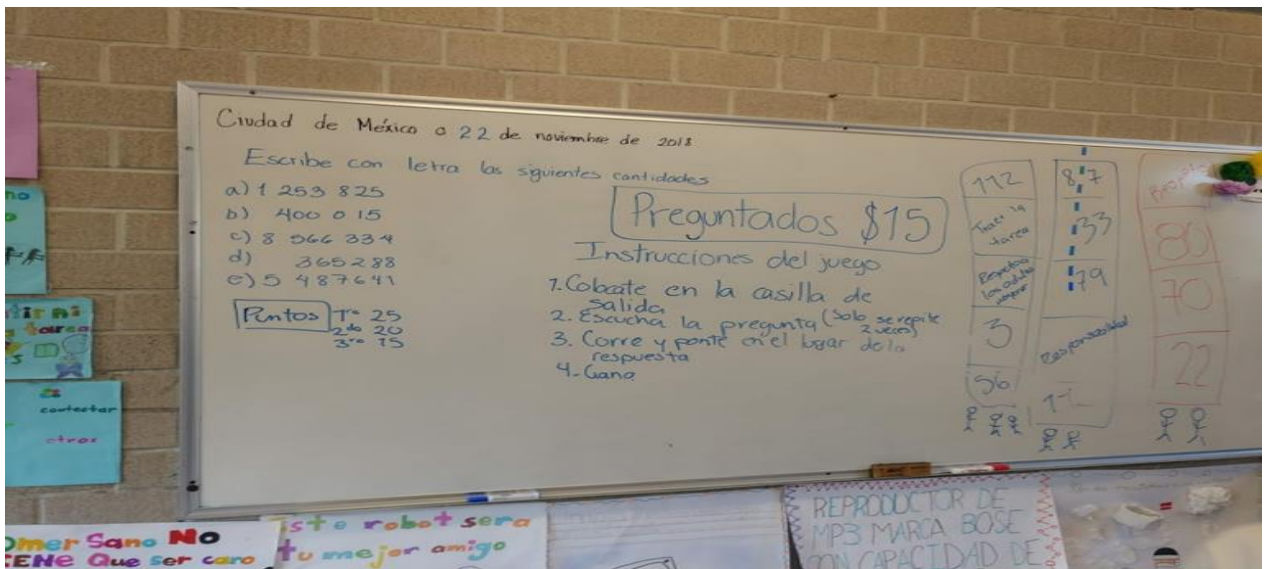 Ciudad de México a 22 de noviembre de 2018
Escribe con letra las siguientes cantidades
a) 1 253 825
b) 400 015
c) 8 566 334
d) 365288
e) 5 487641
Puntos 1ro 25
2do 20
3ro 15
Preguntados $15
Instrucciones del juego
1. Colocate en la casilla de
salida
2. Escucha la pregunta (Solo se repite
2 veces)
3. Corre y ponte en el lugar de la
respuesta
4. Gana
112
Traer la
tarea
Respetar
los adultos
mayores
3
56
87
33
79
Responsabilidad
Respeto
80
70
22
tarea
contestar
otros
omer Sano No
ENE Que ser caro
ste robot sera
tu mejor amigo
REPRODUCTOR DE
MP3 MARCA BOSE
CON CAPACIDAD DE